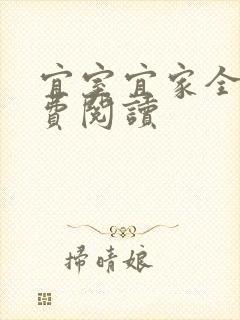 宜室宜家全
費閱讀
掃晴娘